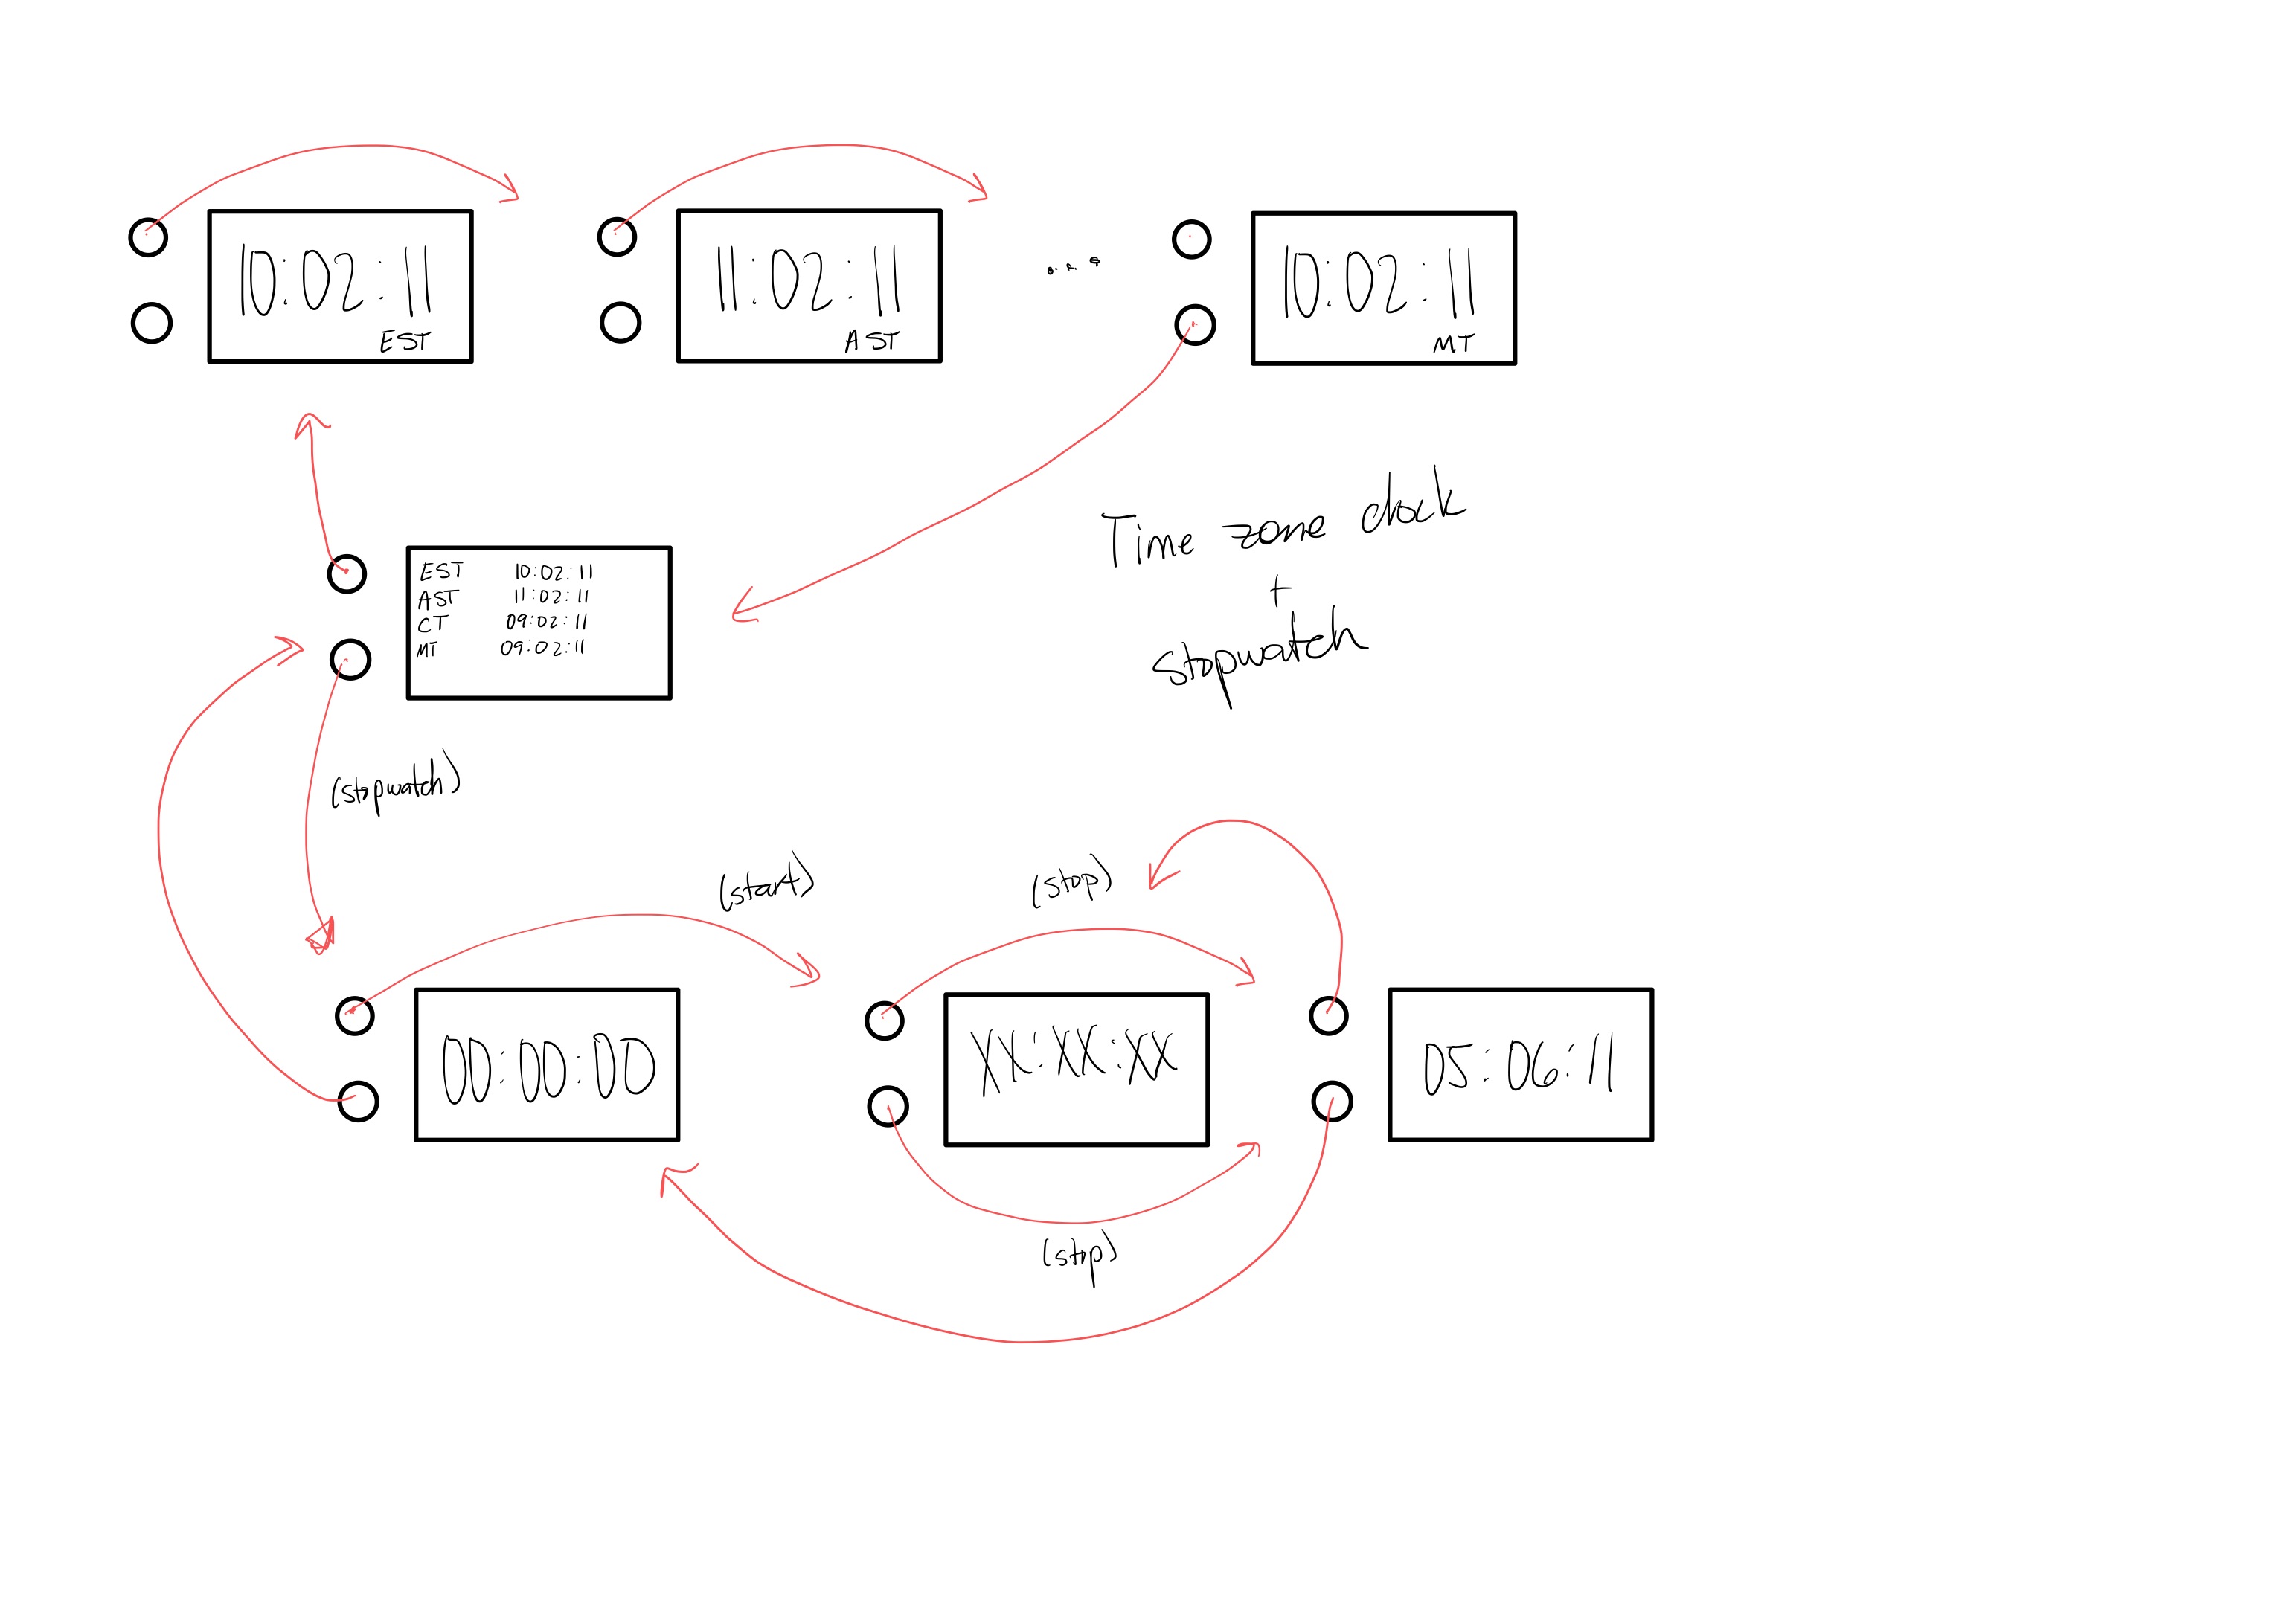 10:02:11
EST
11:02:11
AST
....
10:02:11
MT
Time zone clock
+
stopwatch
EST 10:02:11
AST 11:02:11
CT 09:02:11
MT 09:02:11
(stopwatch)
(start)
(stop)
00:00:00
XX:XX:XX
05:06:11
(stop)